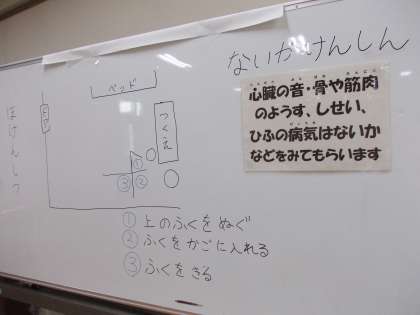 ないかけんしん
心臓の音・骨や筋肉
のようす、しせい、
ひふの病気はないか
などをみてもらいます
ベッド
つくえ
ほけんしつ
①
③ ②
① 上のふくをぬぐ
② ふくをかごに入れる
③ ふくをきる